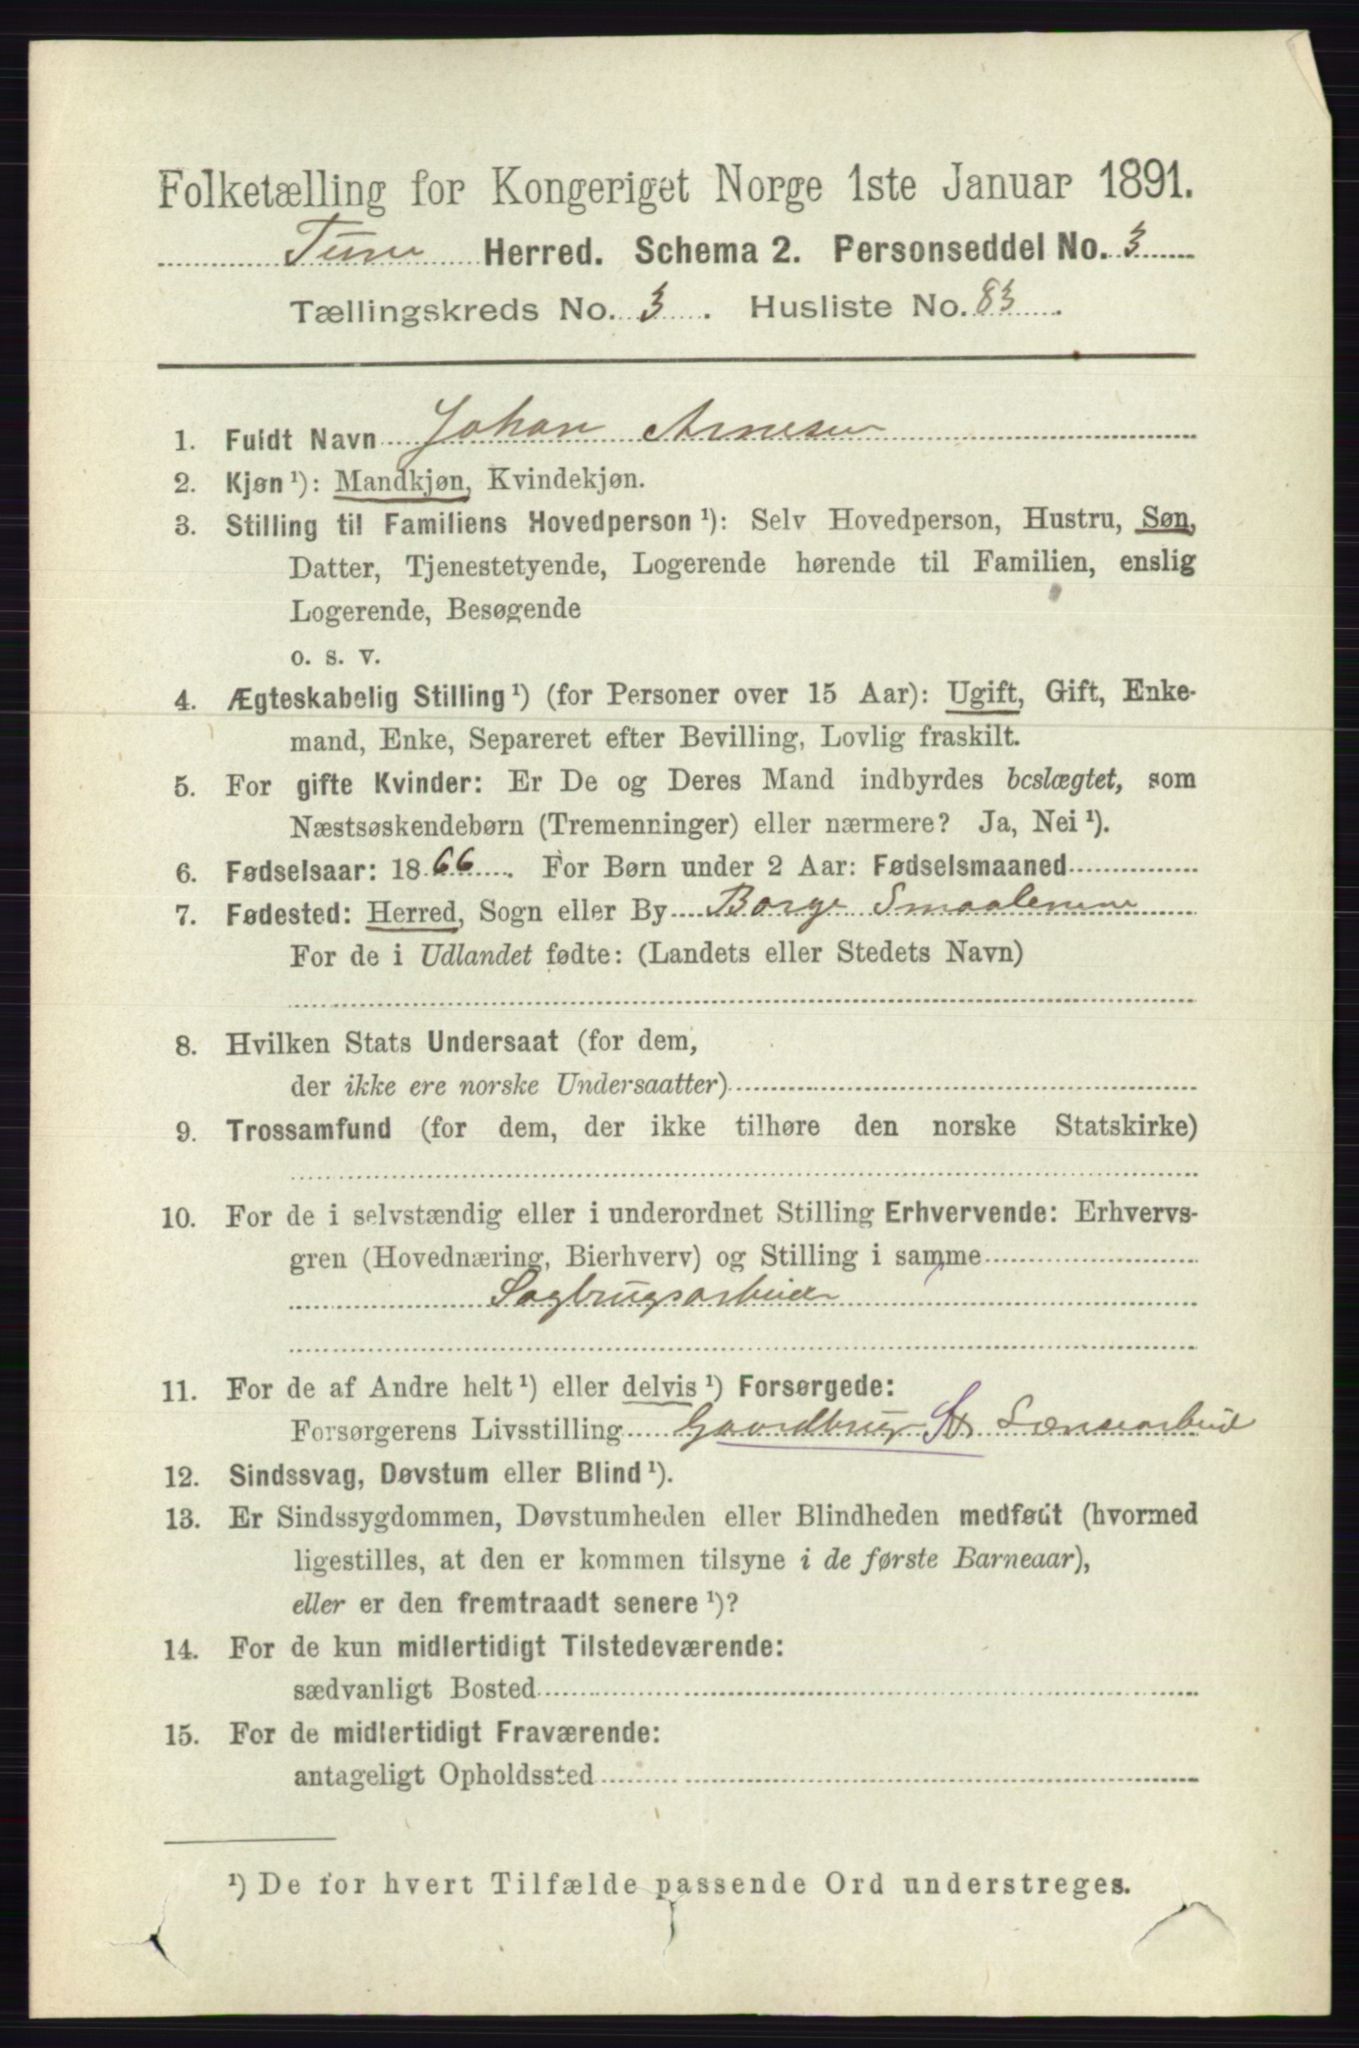 Folketælling for Kongeriget Norge 1ste Januar 1891.
Tune Herred. Schema 2. Personseddel No. 3
Tællingskreds No. 3. Husliste No. 83.
1. Fuldt Navn Johan Arnesen
2. Kjøn ¹): Mandkjøn, Kvindekjøn.
3. Stilling til Familiens Hovedperson ¹): Selv Hovedperson, Hustru, Søn,
Datter, Tjenestetyende, Logerende hørende til Familien, enslig
Logerende, Besøgende
o. s. v.
4. Ægteskabelig Stilling ¹) (for Personer over 15 Aar): Ugift, Gift, Enke-
mand, Enke, Separeret efter Bevilling, Lovlig fraskilt.
5. For gifte Kvinder: Er De og Deres Mand indbyrdes beslægtet, som
Næstsøskendebørn (Tremenninger) eller nærmere? Ja, Nei ¹).
6. Fødselsaar: 1866. For Børn under 2 Aar: Fødselsmaaned
7. Fødested: Herred, Sogn eller By Borge Smaalenene
For de i Udlandet fødte: (Landets eller Stedets Navn)
8. Hvilken Stats Undersaat (for dem,
der ikke ere norske Undersaatter)
9. Trossamfund (for dem, der ikke tilhøre den norske Statskirke)
10. For de i selvstændig eller i underordnet Stilling Erhvervende: Erhvervs-
gren (Hovednæring, Bierhverv) og Stilling i samme
Sagbrugsarbeider
11. For de af Andre helt ¹) eller delvis ¹) Forsørgede:
Forsørgerens Livsstilling Gaardbrug Lænsearbeid
12. Sindssvag, Døvstum eller Blind ¹).
13. Er Sindssygdommen, Døvstumheden eller Blindheden medfødt (hvormed
ligestilles, at den er kommen tilsyne i de første Barneaar),
eller er den fremtraadt senere ¹)?
14. For de kun midlertidigt Tilstedeværende:
sædvanligt Bosted
15. For de midlertidigt Fraværende:
antageligt Opholdssted
¹) De for hvert Tilfælde passende Ord understreges.